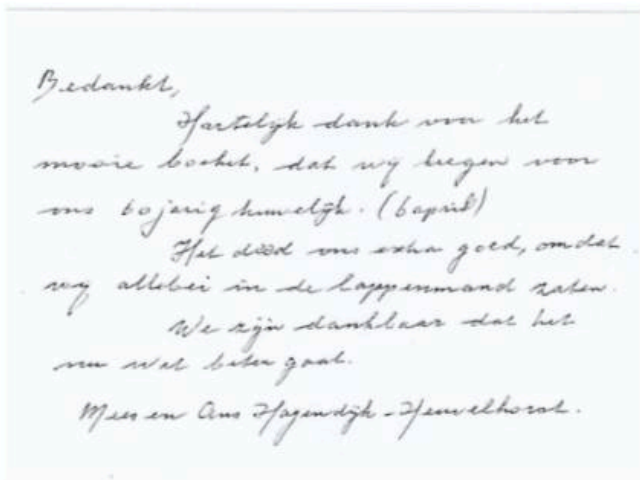 Bedankt,
Hartelijk dank voor het
mooie boeket, dat wij kregen voor
ons 60 jarig huwelijk. (6 april)
Het deed ons extra goed, omdat
wij allebei in de lappenmand zaten.
We zijn dankbaar dat het
nu wat beter gaat.
Mees en Ans Hagendijk-Heuvelhorst.